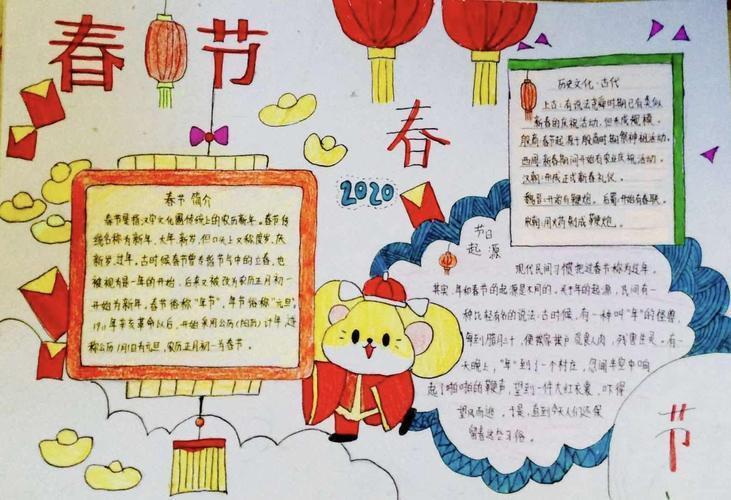 春节
春
2020
春节 简介
春节是指汉字文化圈传统上的农历新年。春节传
统名称为新年、大年、新岁,但口头上又称度岁、庆
新岁、过年。古时候春节曾专指节气中的立春,也
被视为是一年的开始,后来又被改为农历正月初一
开始为新年。春节俗称“年节”,年节俗称“元旦”。
1911年辛亥革命以后,开始采用公历(阳历)计年,遂
称公历1月1日为元旦,农历正月初一为春节。
历史文化·古代
上古:有说法尧舜时期已有类似
新春的庆祝活动,但未成规模。
殷商:春节起源于殷商时期祭神祖活动。
西周:新春期间开始有农业庆祝活动。
汉朝:开成正式新春礼仪。
魏晋:开始有鞭炮。后蜀:开始有春联。
宋朝:用火药制成鞭炮。
节日
起源
现代民间习惯把过春节称为过年。
其实,年和春节的起源是不同的。关于年的起源,民间有一
种比较有名的说法:古时候,有一种叫“年”的怪兽,
每到腊月三十,便挨家挨户觅食人肉,残害生灵。有一
天晚上,“年”到了一个村庄,忽闻半空中响
起了啪啪的鞭声,望到一件大红衣裳,吓得
望风而逃,于是,直到今天人们还保
留着这些习俗。
节